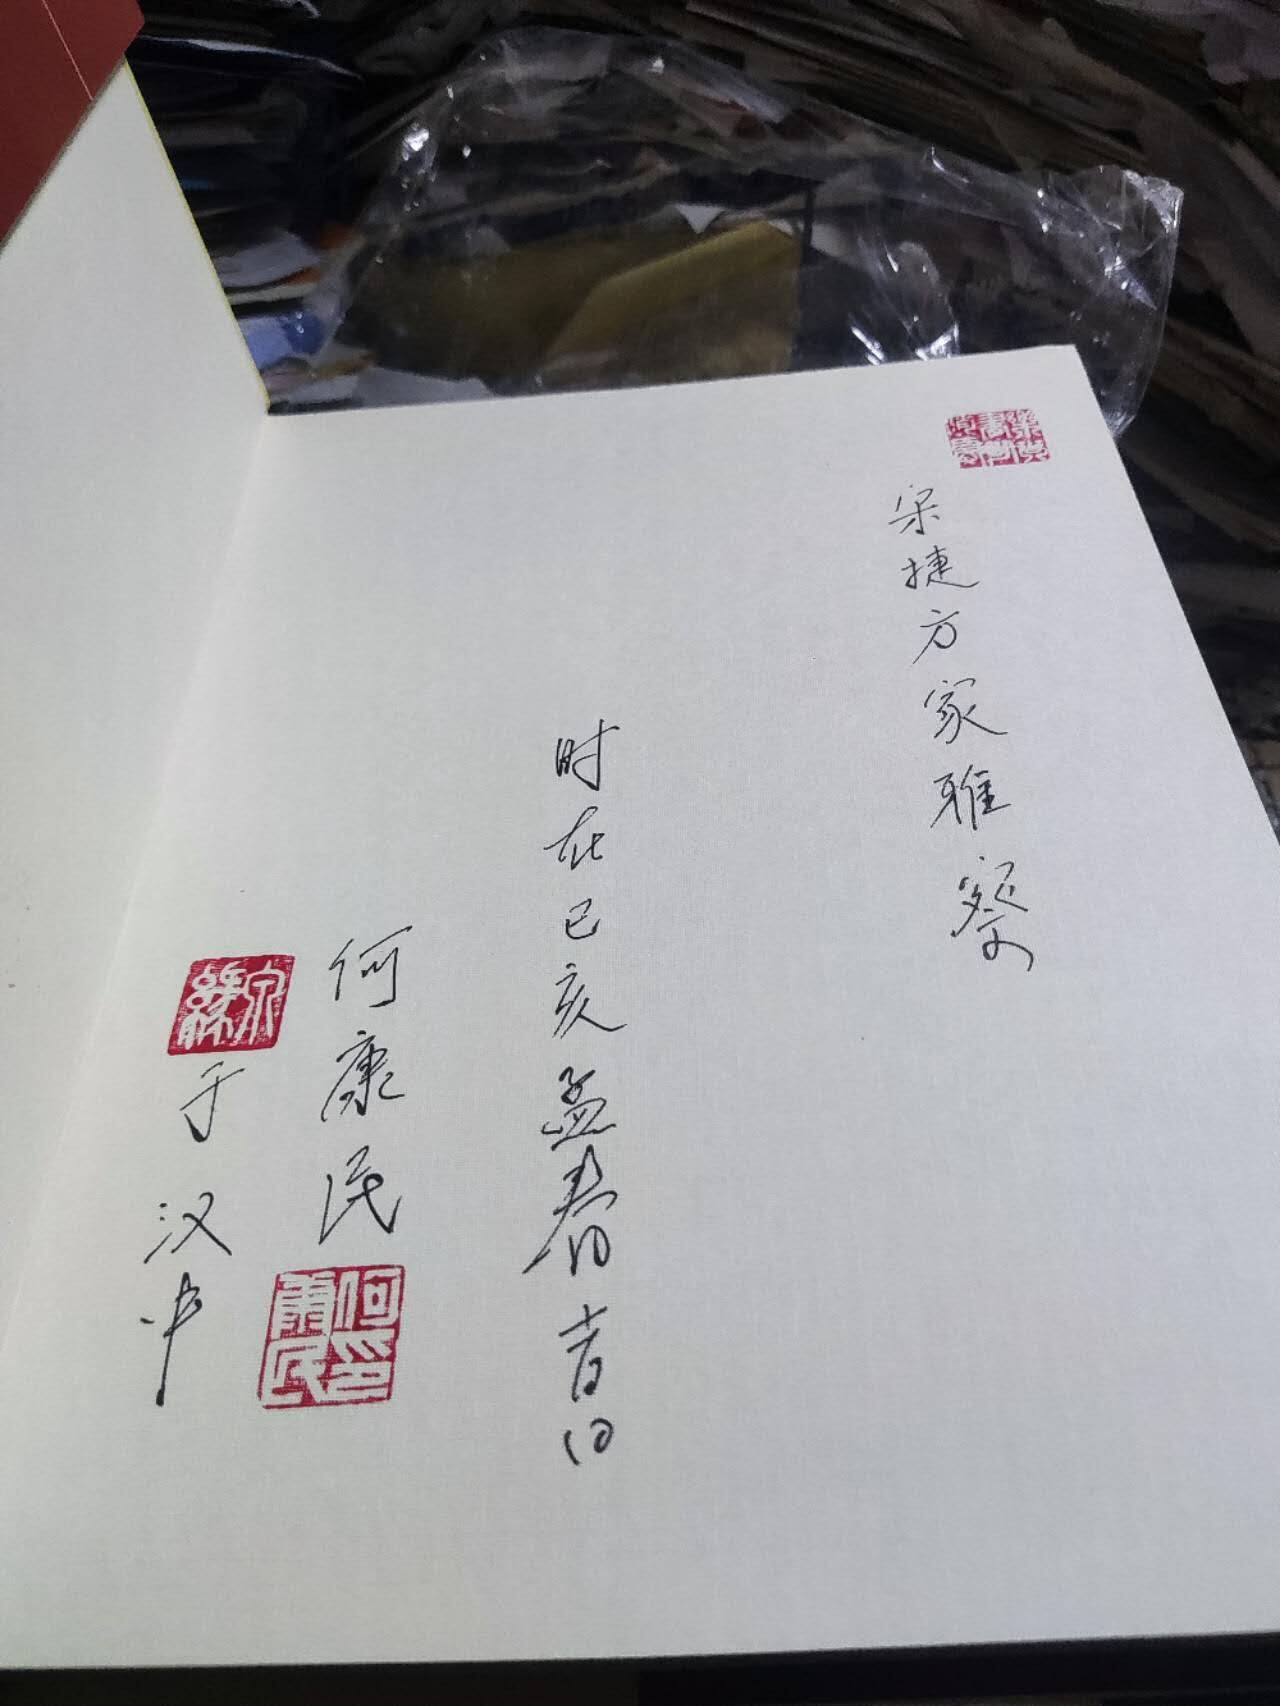 宋捷方家雅察
时在己亥孟春吉日
何康民
何印康民
于汉中